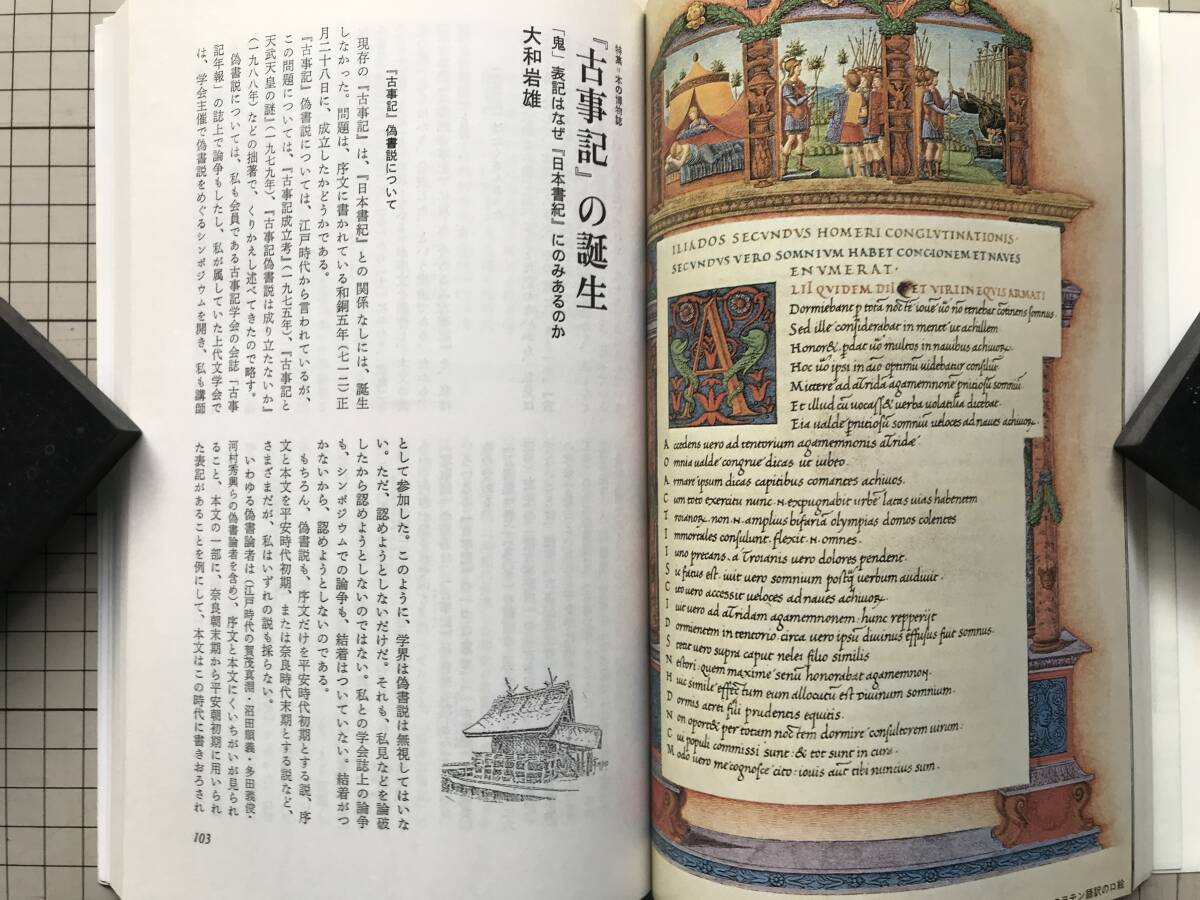 特集・本の博物誌
『古事記』の誕生
「鬼」表記はなぜ『日本書紀』にのみあるのか
大和岩雄
『古事記』偽書説について
現存の『古事記』は、『日本書紀』との関係なしには、誕生
しなかった。問題は、序文に書かれている和銅五年(七一二)正
月二十八日に、成立したかどうかである。
『古事記』偽書説については、江戸時代から言われているが、
この問題については、『古事記成立考』(一九七五年)、『古事記と
天武天皇の謎』(一九七九年)、『古事記偽書説は成り立たないか』
(一九八八年)などの拙著で、くりかえし述べてきたので略す。
偽書説については、私も会員である古事記学会の会誌『古事
記年報』の誌上で論争もしたし、私が属していた上代文学会で
は、学会主催で偽書説をめぐるシンポジウムを開き、私も講師
として参加した。このように、学界は偽書説は無視してはいな
い。ただ、認めようとしないだけだ。それも、私見などを論破
したから認めようとしないのではない。私との学会誌上の論争
も、シンポジウムでの論争も、結着はついていない。結着がつ
かないから、認めようとしないのである。
もちろん、偽書説も、序文だけを平安時代初期とする説、序
文と本文を平安時代初期、または奈良時代末期とする説など、
さまざまだが、私はいずれの説も採らない。
いわゆる偽書論者は(江戸時代の賀茂真淵・沼田順義・多田義俊・
河村秀興らの偽書論者を含め)、序文と本文にくいちがいが見られ
ること、本文の一部に、奈良朝末期から平安朝初期に用いられ
た表記があることを例にして、本文はこの時代に書きおろされ
103
ILIADOS SECVNDVS HOMERI CONGLVTINATIONIS·
SECVNDVS VERO SOMNIVM HABET CONCIONEM ET NAVES
ENVMERAT·
LII QVIDEM DII ET VIRI IN EQVIS ARMATI
Dormiebant
Sed ille considerabat in mente ut achillem
multos in navibus
Hoc
Et illud
veloces ad naves
Accedens vero ad tentorium agamemnonis
Omnia ualde congrue dicas ut iubeo.
Armare ipsum dicas capitibus comantes achiuos.
Cum toto exercitu nunc
amplius
olympias domos colentes
Immortales consulunt. flexit
omnes.
Iuno precans. a Troianis uero dolores pendent.
uero somnium
uerbum audiuit.
uero accessit ueloces ad naues
uero ad
agamemnonem: hunc repperijt
Dormientem in tentorio. circa uero
Stetit uero supra caput nelei filio similis
Nestori: quem maxime
honorabat agamemnon.
Huic simile
tum eum
est diuinum somnium.
Dormis atrei fili prudentis equitis.
Non
per totam
dormire consultorem uirum:
Cui populi commissi sunt: & tot sunt in cura.
Modo uero me cognosce cito: iouis
tibi nuncius sum.
ラテン語訳の口絵